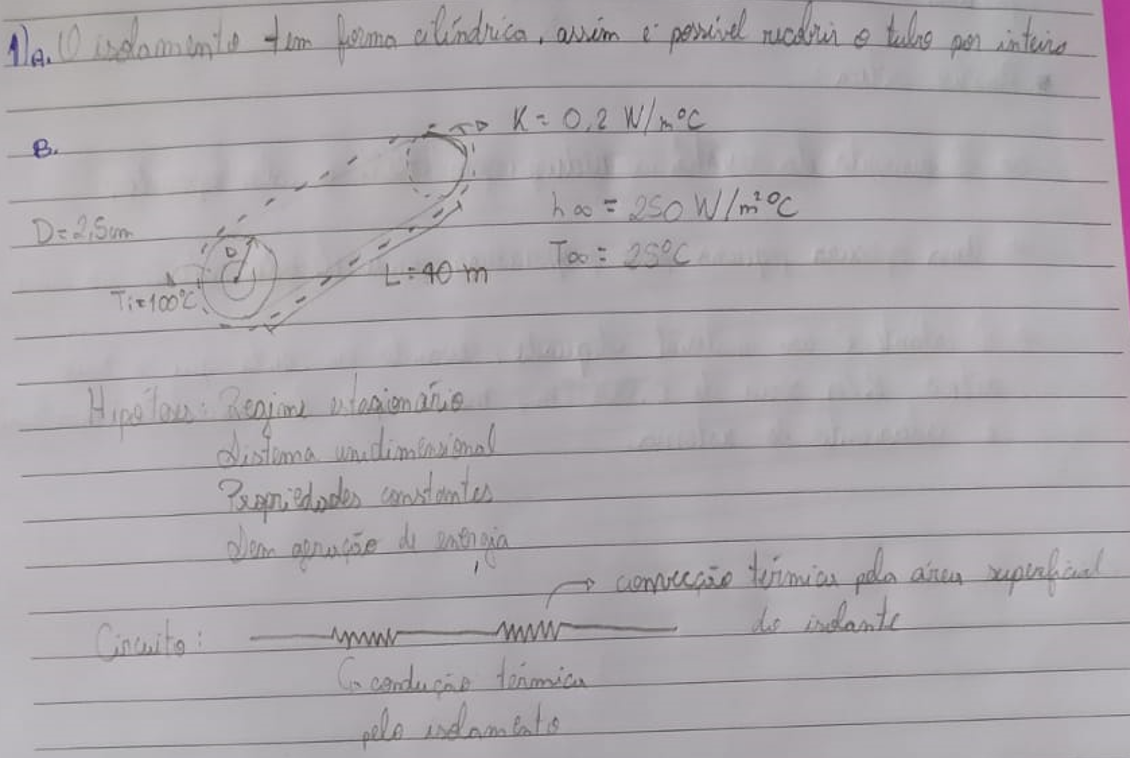 1)A. O isolamento tem forma cilíndrica, assim é possível recobrir o tubo por inteiro
B.
K = 0,2 W/m°C
D = 2,5cm
h∞ = 250 W/m²°C
T∞ = 25°C
D
L = 40 m
Ti = 100°C
Hipóteses: Regime estacionário
Sistema unidimensional
Propriedades constantes
Sem geração de energia
→ convecção térmica pela área superficial
do isolante
Circuito:
↳ condução térmica
pelo isolamento